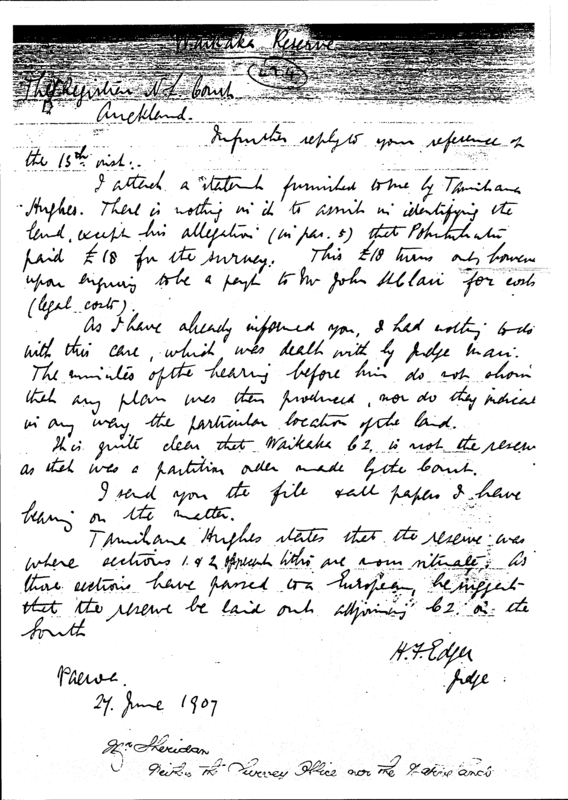 Waikaka Reserve
The Registrar N L Court
Auckland.
In further reply to your reference of
the 15th inst:.
I attach a statemt furnished to me by Tamihana
Hughes. There is nothing in it to assist in identifying the
land, except his allegation (in par. 5) that
paid £18 for the survey. This £18 turns out, however
upon enquiry to be a paymt to Mr John for costs
(legal costs)
As I have already informed you, I had nothing to do
with this case, which was dealt with by Judge Mair.
The minutes of the hearing before him do not show
that any plan was then produced, nor do they indicate
in any way the particular location of the land.
It is quite clear that Waikaka C2 is not the reserve
as that was a partition order made by the Court.
I send you the file & all papers I have
bearing on the matter.
Tamihana Hughes states that the reserve was
where sections 1 & 2 are now situate. As
those sections have passed to a European, he suggests
that the reserve be laid out adjoining C2 on the
South
H. F. Edger
Judge
Paeroa.
27 June 1907
Mr Sheridan
Neither the Survey Office nor the Native Lands